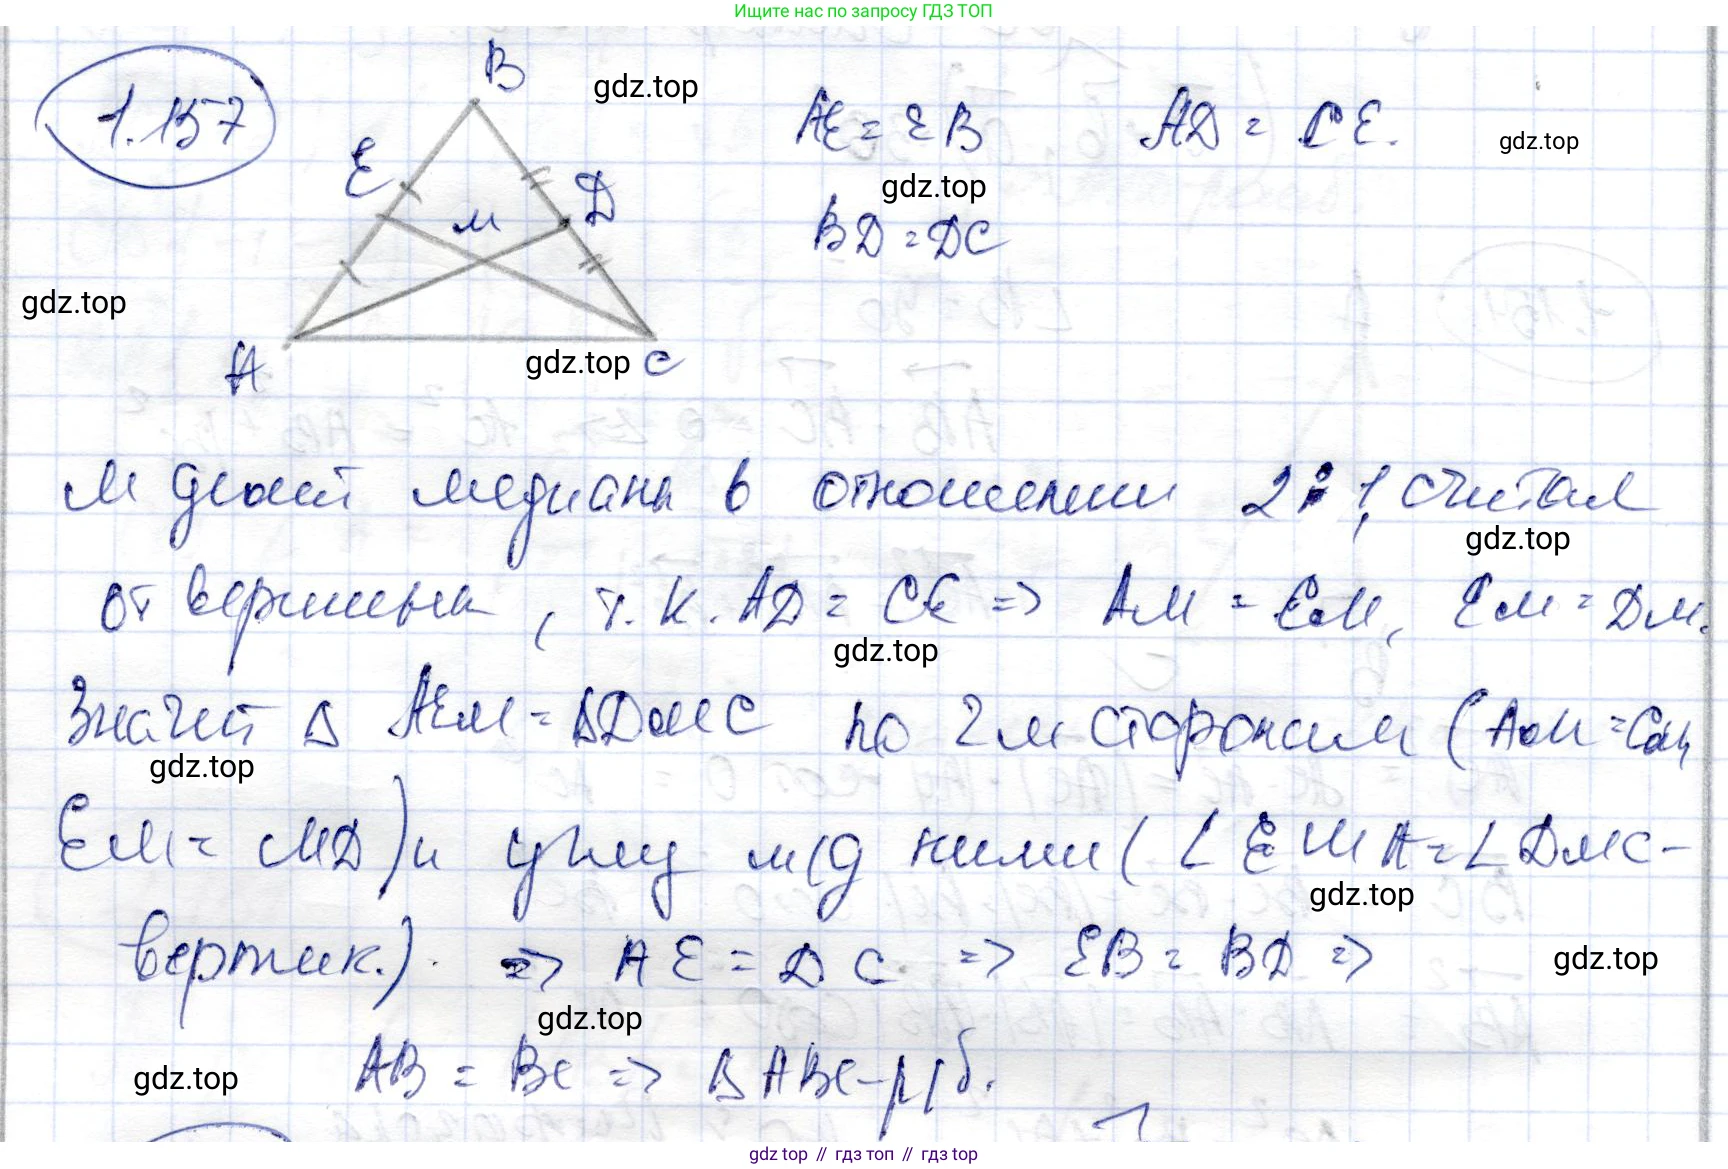 Ищите нас по запросу ГДЗ ТОП
1.157
B
gdz.top
AE = EB
AD = CE.
gdz.top
E
D
M
gdz.top
BD = DC
gdz.top
A
gdz.top
C
M делит медианы в отношении 2:1, считая
gdz.top
от вершины, т.к. AD = CE => AM = CM, EM = DM.
gdz.top
Значит Δ AEM = ΔDMC по 2м сторонам (AM = CM,
gdz.top
EM = MD) и углу м/д ними (∠EMA = ∠DMC -
gdz.top
вертик.) => AE = DC => EB = BD =>
gdz.top
gdz.top
AB = BC => Δ ABC - р/б.
gdz.top
gdz top // гдз топ // гдз top